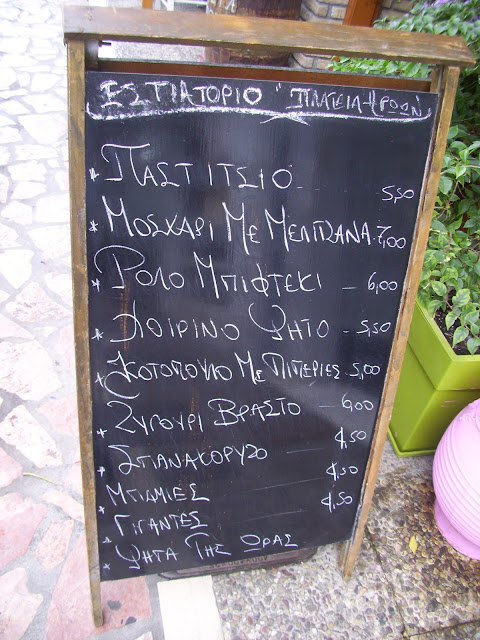 ΕΣΤΙΑΤΟΡΙΟ "ΠΛΑΤΕΙΑ ΗΡΩΩΝ"
* ΠΑΣΤΙΤΣΙΟ 5,50
* ΜΟΣΧΑΡΙ ΜΕ ΜΕΛΙΤΖΑΝΑ 7,00
* ΡΟΛΟ ΜΠΙΦΤΕΚΙ – 6,00
* ΧΟΙΡΙΝΟ ΨΗΤΟ – 5,50
* ΚΟΤΟΠΟΥΛΟ ΜΕ ΠΙΠΕΡΙΕΣ 5,00
* ΖΥΓΟΥΡΙ ΒΡΑΣΤΟ – 6,00
* ΣΠΑΝΑΚΟΡΥΖΟ 4,50
* ΜΠΑΜΙΕΣ 4,50
* ΓΙΓΑΝΤΕΣ 4,50
* ΨΗΤΑ ΤΗΣ ΩΡΑΣ